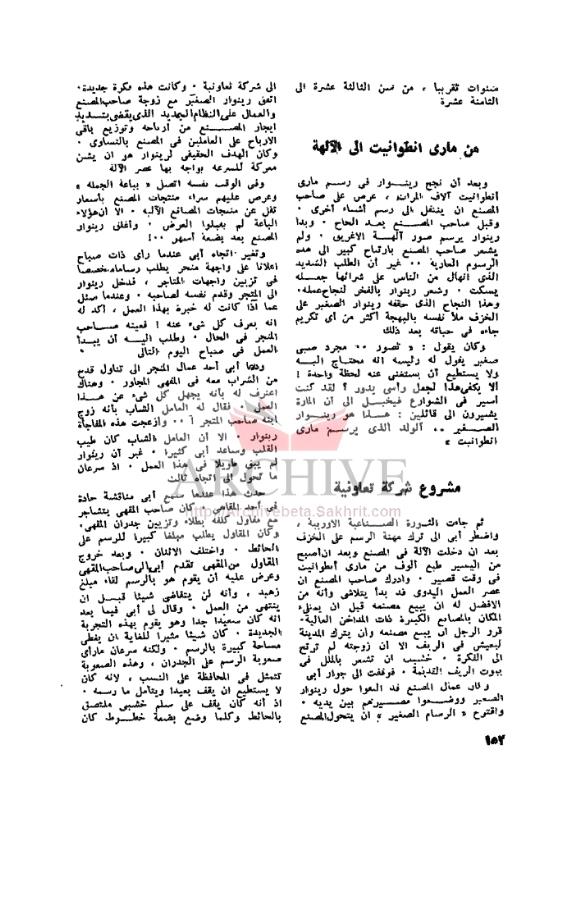 سنوات تقريبا ، من سن الثالثة عشرة الى
الثامنة عشرة
من مارى انطوانيت الى الآلهة
وبعد أن نجح رينوار فى رسم مارى
أنطوانيت آلاف المرات ، عرض على صاحب
المصنع ان ينتقل الى رسم أشياء أخرى ·
وقبل صاحب المصنع بعد الحاح · وبدأ
رينوار يرسم صور آلهة الاغريق · ولم
يشعر صاحب المصنع بارتياح كبير الى هذه
الرسوم العارية ·· غير أن الطلب الشديد
الذى انهال من الناس على شرائها جعله
يسكت · وشعر رينوار بالفخر لنجاح عمله·
وهذا النجاح الذى حققه رينوار الصغير على
الخزف ملأ نفسه بالبهجة أكثر من أى تكريم
جاءه فى حياته بعد ذلك
وكان يقول : « تصور ·· مجرد صبى
صغير يقول له رئيسه انه محتاج اليه
ولا يستطيع أن يستغنى عنه لحظة واحدة !
ألا يكفى هذا لجعل رأسى يدور ؟ لقد كنت
أسير فى الشوارع فيخيل الى أن المارة
يشيرون الى قائلين : هذا هو رينوار
الصغير ·· الولد الذى يرسم مارى
انطوانيت »
مشروع شركة تعاونية
ثم جاءت الثورة الصناعية الاوربية ،
واضطر أبى الى ترك مهنة الرسم على الخزف
بعد ان دخلت الآلة فى المصنع وبعد ان أصبح
من اليسير طبع ألوف من مارى أنطوانيت
فى وقت قصير · وأدرك صاحب المصنع ان
عصر العمل اليدوى قد بدأ يتلاشى وأنه من
الافضل له ان يبيع مصنعه قبل ان يمتلىء
المكان بالمصانع الكبيرة ذات المداخن العالية·
قرر الرجل ان يبيع مصنعه وأن يترك المدينة
ليعيش فى الريف الا أن زوجته لم ترتح
الى الفكرة · خشيت ان تشعر بالملل فى
بيوت الريف القديمة · فوقفت الى جوار أبى
وكان عمال المصنع قد التفوا حول رينوار
الصغير ووضعوا مصيرهم بين يديه ·
واقترح « الرسام الصغير » ان يتحول المصنع
الى شركة تعاونية · وكانت هذه فكرة جديدة·
اتفق رينوار الصغير مع زوجة صاحب المصنع
والعمال على النظام الجديد الذى يقضى بتسديد
ايجار المصنع من أرباحه وتوزيع باقى
الارباح على العاملين فى المصنع بالتساوى ·
وكان الهدف الحقيقى لرينوار هو ان يشن
معركة للسرعة يواجه بها عصر الآلة
وفى الوقت نفسه اتصل « بباعة الجملة »
وعرض عليهم شراء منتجات المصنع بأسعار
تقل عن منتجات المصانع الآلية · الا ان هؤلاء
الباعة لم يقبلوا العرض · وأغلق رينوار
المصنع بعد بضعة أشهر ··!
وتغير اتجاه أبى عندما رأى ذات صباح
اعلانا على واجهة متجر يطلب رساما متخصصا
فى تزيين واجهات المتاجر ، فدخل رينوار
الى المتجر وقدم نفسه لصاحبه · وعندما سئل
عما اذا كانت له خبرة بهذا العمل ، أكد له
انه يعرف كل شىء عنه ! فعينه صاحب
المتجر فى الحال · وطلب اليه أن يبدأ
العمل فى صباح اليوم التالى
ودعا أبى أحد عمال المتجر الى تناول قدح
من الشراب معه فى المقهى المجاور · وهناك
اعترف له بأنه يجهل كل شىء عن هذا
العمل · فقال له العامل الشاب بأنه زوج
ابنة صاحب المتجر ! ·· وأزعجت هذه المفاجأة
رينوار · الا أن العامل الشاب كان طيب
القلب وساعد أبى كثيرا · غير أن رينوار
لم يبق طويلا فى هذا العمل · اذ سرعان
ما تحول الى اتجاه ثالث
حدث هذا عندما سمع أبى مناقشة حادة
فى أحد المقاهى · كان صاحب المقهى يتشاجر
مع مقاول كلفه بطلاء وتزيين جدران المقهى·
وكان المقاول يطلب مبلغا كبيرا للرسم على
الحائط · واختلف الاثنان · وبعد خروج
المقاول من المقهى تقدم أبى الى صاحب المقهى
وعرض عليه أن يقوم هو بالرسم لقاء مبلغ
زهيد ، وأنه لن يتقاضى شيئا قبل ان
ينتهى من العمل · وقال لى أبى فيما بعد
انه كان سعيدا جدا وهو يقوم بهذه التجربة
الجديدة · كان شيئا مثيرا للغاية ان يغطى
مساحة كبيرة بالرسم · ولكنه سرعان ما رأى
صعوبة الرسم على الجدران ، وهذه الصعوبة
تتمثل فى المحافظة على النسب ، لانه كان
لا يستطيع ان يقف بعيدا ويتأمل ما رسمه ·
اذ أنه كان يقف على سلم خشبى ملتصق
بالحائط وكلما وضع بضعة خطوط كان
١٥٢
ARCHIVE
http://Archivebeta.Sakhrit.com